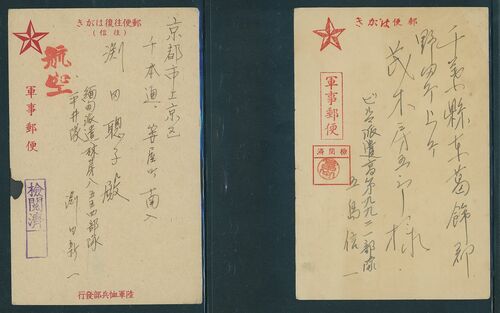 郵便往復はがき
（往信）
京都市上京区
千本通 笹屋町南入
渕田聰子殿
航空
軍事郵便
緬甸派遣林第八五五四部隊
平井隊 渕田新一
檢閲濟
陸軍恤兵部發行
郵便はがき
千葉縣東葛飾郡
野田町上町
茂木房五郎様
軍事郵便
檢閲濟
派遣高第九九二一部隊
五島信一